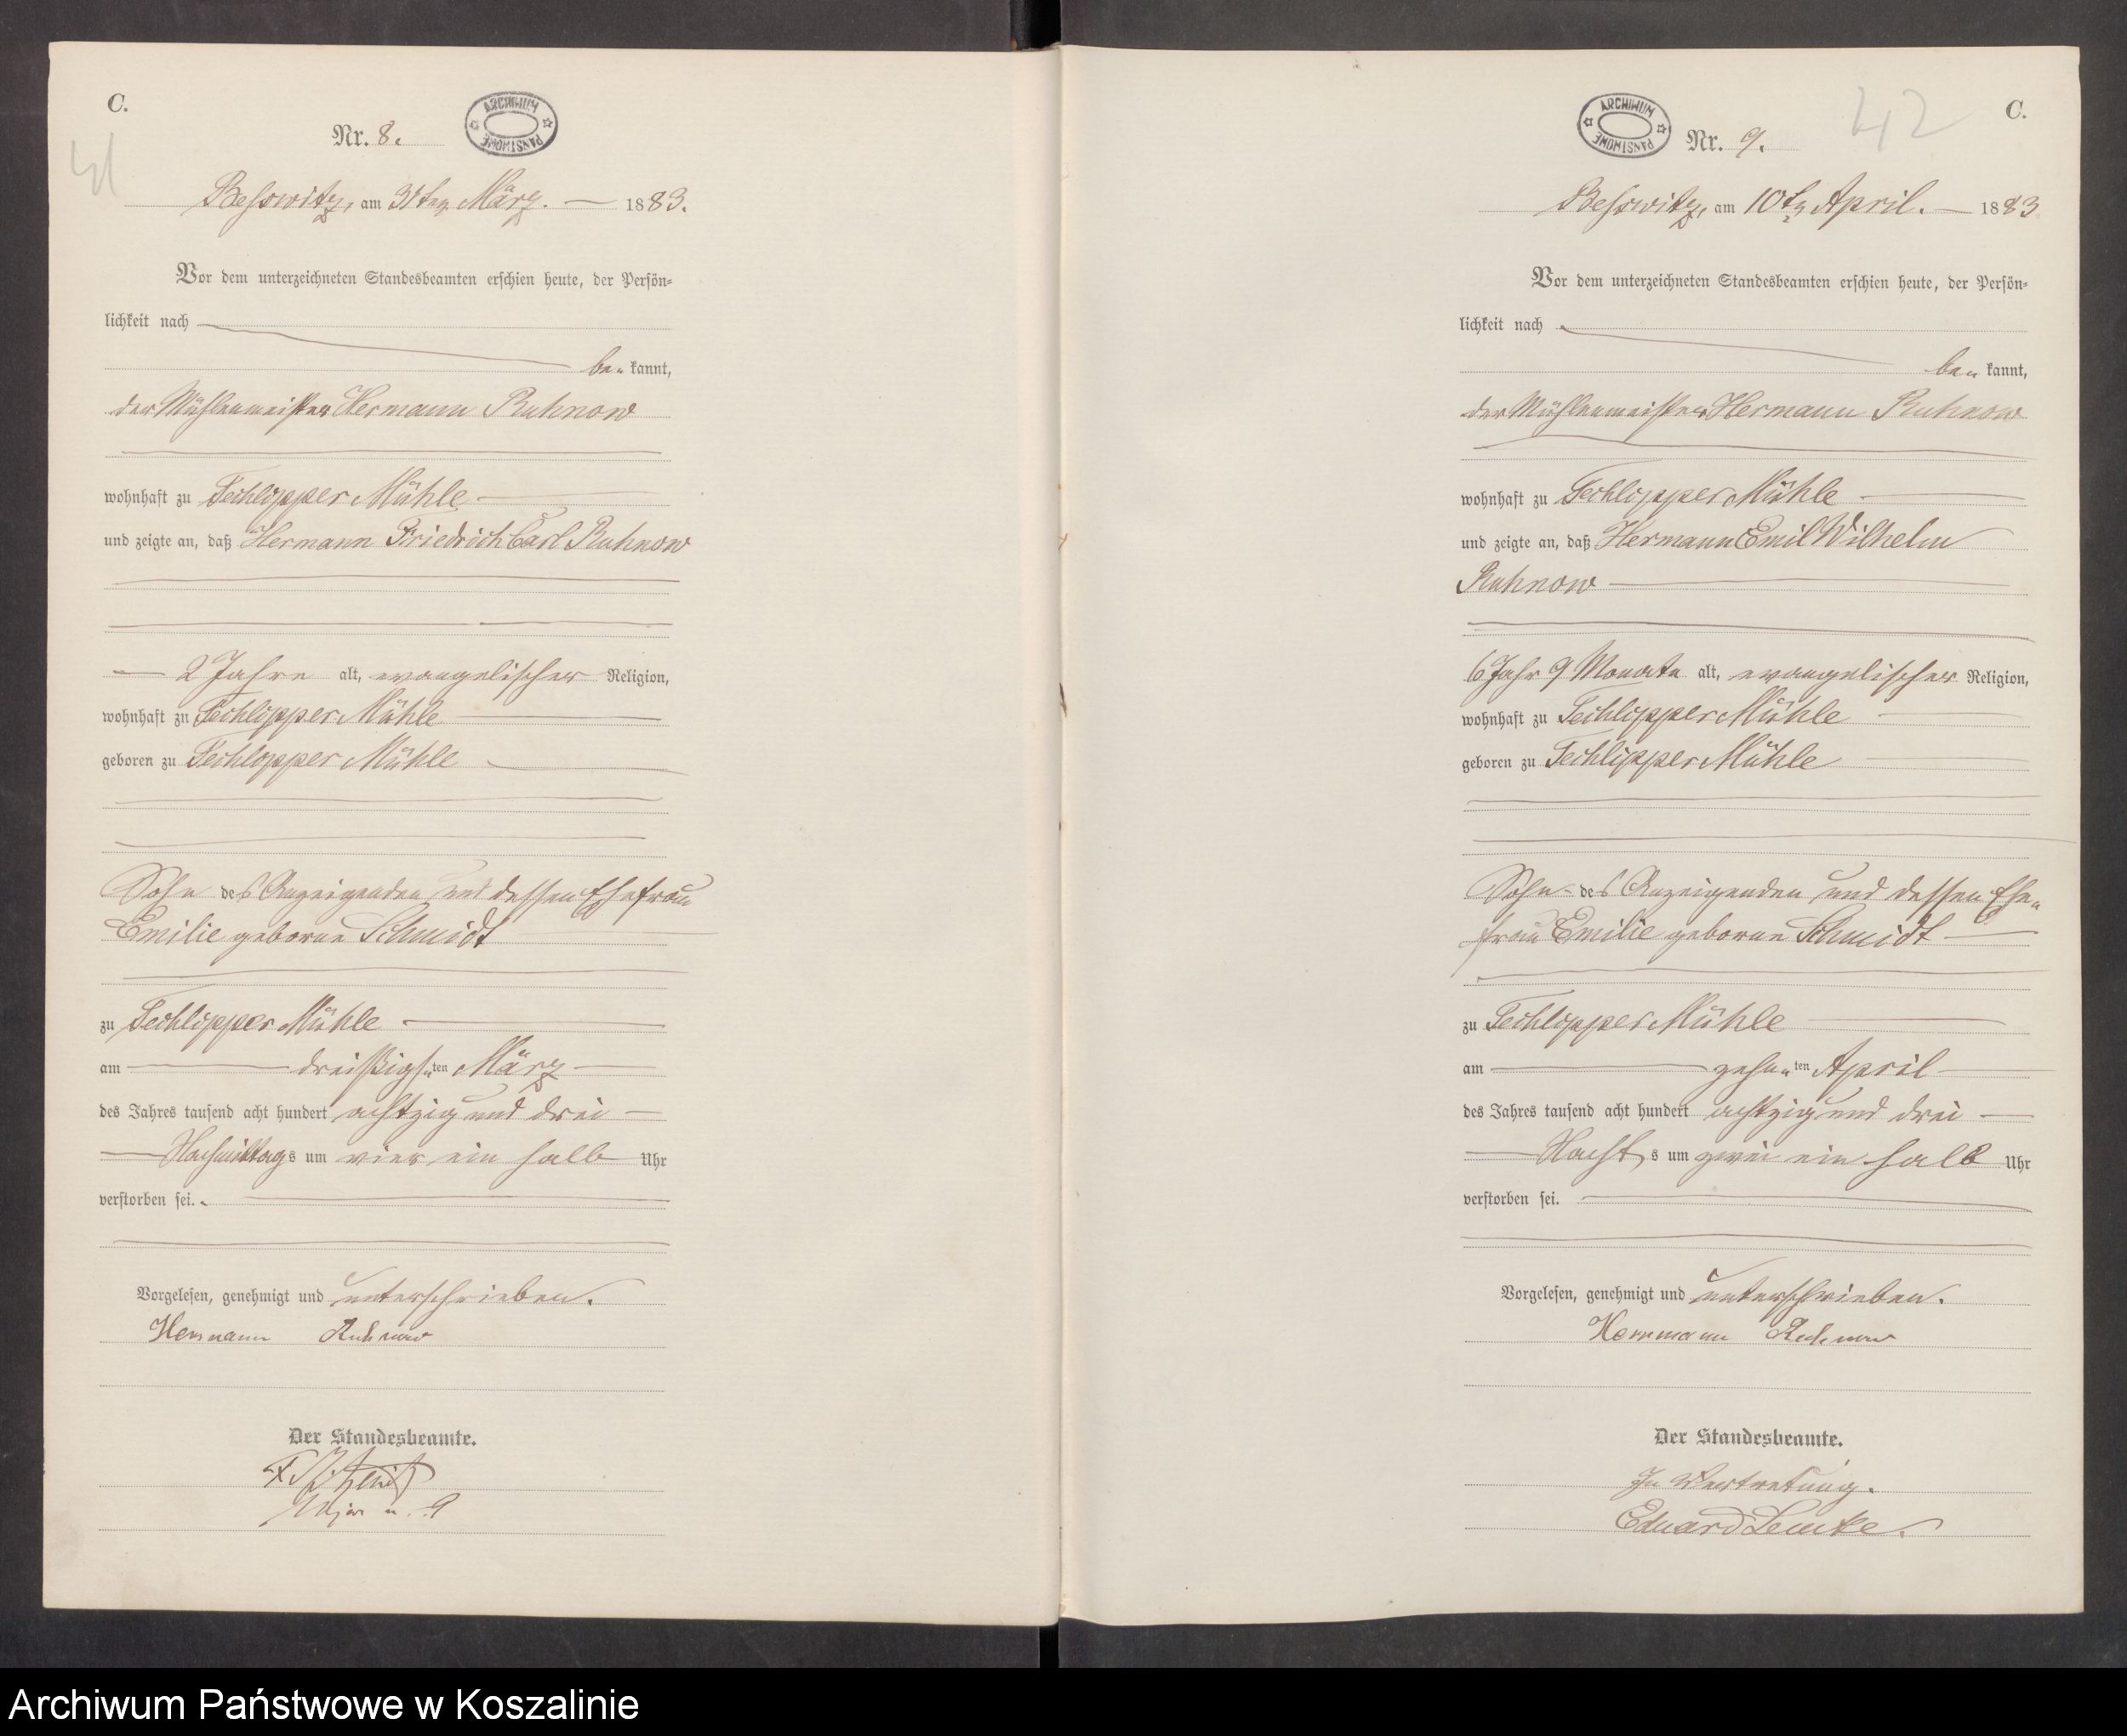 C.
41
Nr. 8.
ARCHIWUM PAŃSTWOWE
Beßwitz, am 31ten März. 1883.
Vor dem unterzeichneten Standesbeamten erschien heute, der Persön-
lichkeit nach
be- kannt,
der Mühlenmeister Hermann Ruhnow
wohnhaft zu Techlipper Mühle
und zeigte an, daß Hermann Friedrich Carl Ruhnow
2 Jahre alt, evangelischer Religion,
wohnhaft zu Techlipper Mühle
geboren zu Techlipper Mühle
Sohn des Anzeigenden und dessen Ehefrau
Emilie geborne Schmidt
zu Techlipper Mühle
am dreißigsten März
des Jahres tausend acht hundert achtzig und drei
Nachmittags um vier ein halb Uhr
verstorben sei.
Vorgelesen, genehmigt und unterschrieben.
Hermann Ruhnow
Der Standesbeamte.
C.
42
ARCHIWUM PAŃSTWOWE
Nr. 9.
Beßwitz, am 10ten April. 1883
Vor dem unterzeichneten Standesbeamten erschien heute, der Persön-
lichkeit nach
be- kannt,
der Mühlenmeister Hermann Ruhnow
wohnhaft zu Techlipper Mühle
und zeigte an, daß Hermann Emil Wilhelm
Ruhnow
6 Jahr 9 Monate alt, evangelischer Religion,
wohnhaft zu Techlipper Mühle
geboren zu Techlipper Mühle
Sohn des Anzeigenden und dessen Ehe-
frau Emilie geborne Schmidt
zu Techlipper Mühle
am zehnten April
des Jahres tausend acht hundert achtzig und drei
Nachts um zwei ein halb Uhr
verstorben sei.
Vorgelesen, genehmigt und unterschrieben.
Herrmann Ruhnow
Der Standesbeamte.
In Vertretung.
Eduard Lemke.
Archiwum Państwowe w Koszalinie